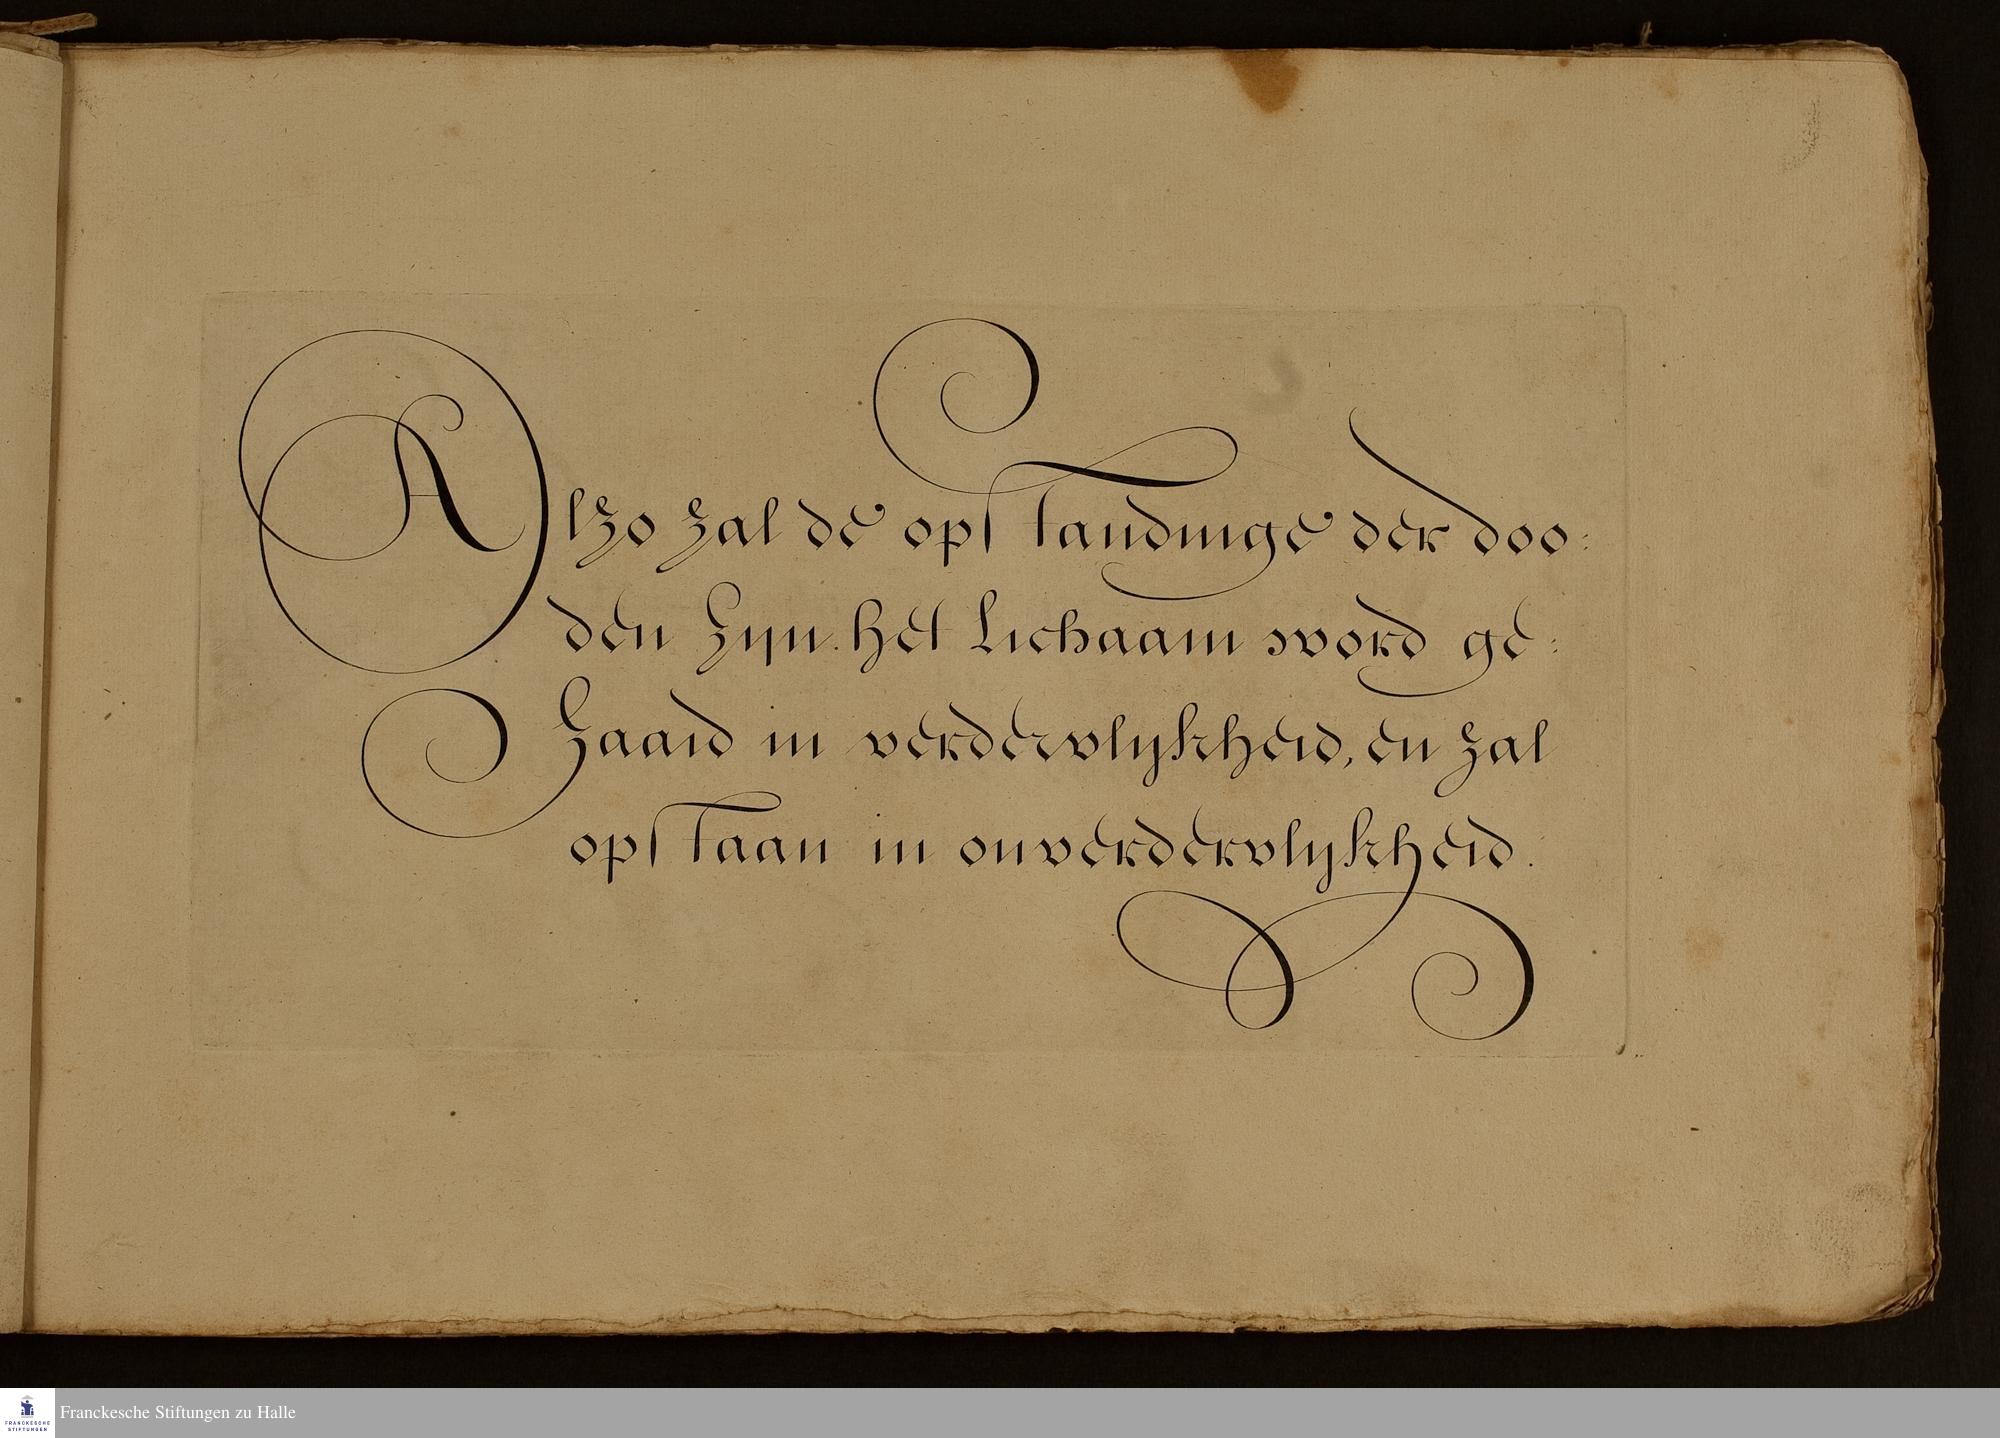 Alzo zal de opstandinge der doo:
den zijn. het Lichaam word ge:
Zaaid in verdervlijkheid, en zal
opstaan in onverdervlijkheid.
FRANCKESCHE
STIFTUNGEN
Franckesche Stiftungen zu Halle